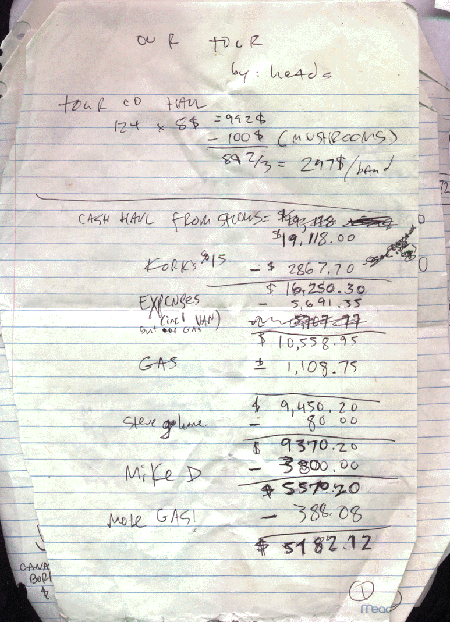 OUR TOUR
by: heads
TOUR CD HAUL
124 x 8$ = 992$
- 100$ (MUSHROOMS)
892/3 = 297$/band
CASH HAUL FROM SHOWS=
$19,118.00
KORK'S $15 - $ 2867.70
$ 16,250.30
EXPENSES - 5,691.35
(incl VAN)
but not GAS
$ 10,558.95
GAS - 1,108.75
$ 9,450.20
Steve - 80.00
$ 9370.20
MIKE D - 3800.00
$ 5570.20
MORE GAS! - 388.08
$ 5182.12
CANA
BOR
$
1
mead